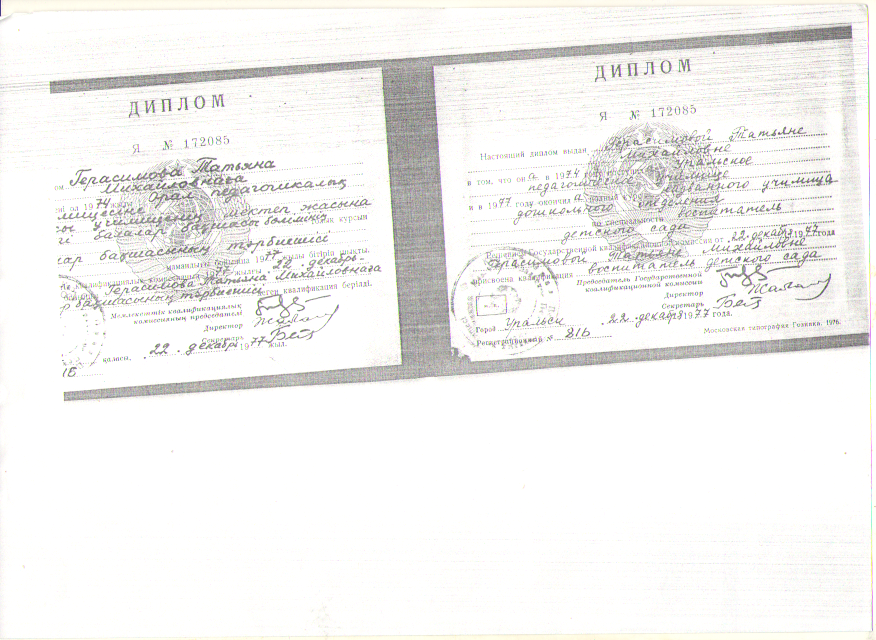 ДИПЛОМ
Я № 172085
Герасимова Татьяна
Михайловнаға
1974 жылы Орал педагогикалық
училищенің мектеп жасына
балалар бақшасы бөлімінің толық курсын
бақшасының тәрбиешісі
мамандығы бойынша 1977 жылы бітіріп шықты.
квалификациялық комиссияның 1977 жылғы 22 декабрь-
Герасимова Татьяна Михайловнаға
бақшасының тәрбиешісі квалификация берілді.
Мемлекеттік квалификациялық
комиссияның председателі
Директор
Секретарь
қаласы, 22 декабрь 1977 жыл.
ДИПЛОМ
Я № 172085
Настоящий диплом выдан Герасимовой Татьяне
Михайловне
в том, что она в 1974 году поступила в Уральское
педагогическое училище
и в 1977 году окончила полный курс названного училища
дошкольного отделения
по специальности воспитатель
детского сада
Решением Государственной квалификационной комиссии от 22 декабря 1977 года
Герасимовой Татьяне Михайловне
присвоена квалификация воспитатель детского сада
Председатель Государственной
квалификационной комиссии
Директор
Секретарь
Город Уральск 22 декабря 1977 года.
Регистрационный № 816
Московская типография Гознака. 1976.